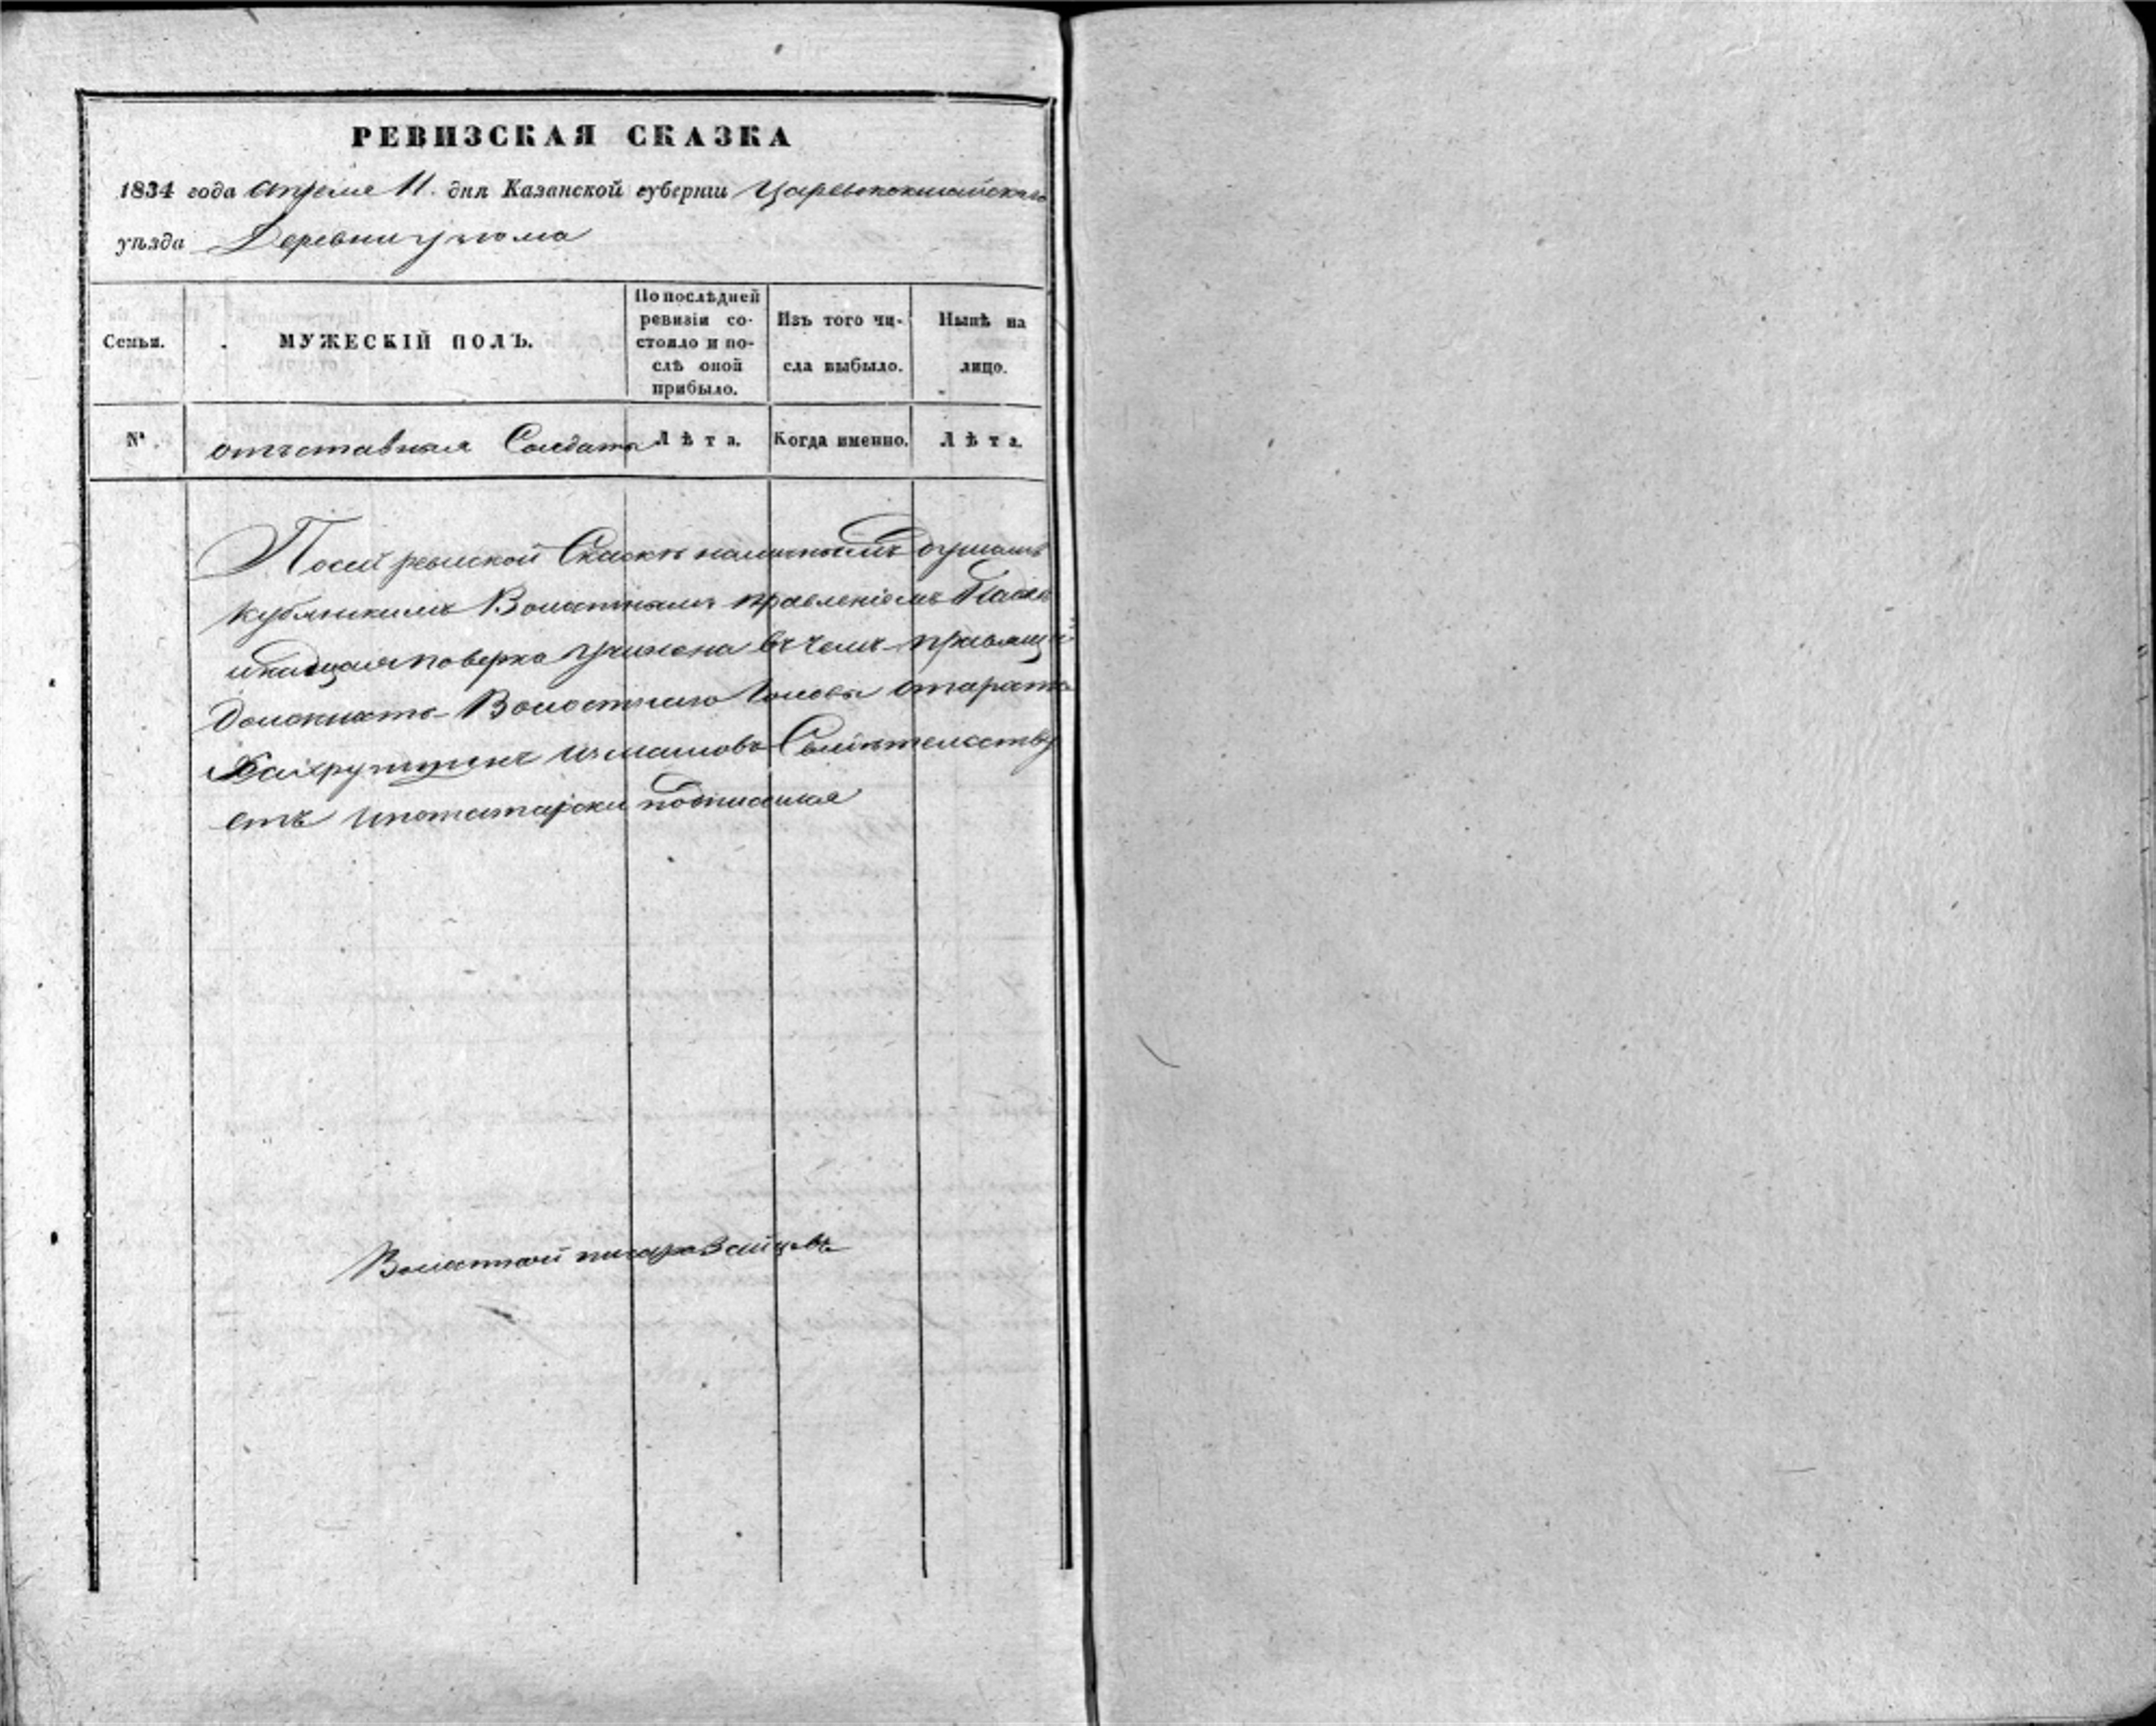 РЕВИЗСКАЯ СКАЗКА
1834 года Апреля 11. дня Казанской губерніи Царевококшайскаго
уѣзда Деревни
Семьи.
МУЖЕСКІЙ ПОЛЪ.
По послѣдней
ревизіи со-
стояло и по-
слѣ оной
прибыло.
Изъ того чи-
сла выбыло.
Нынѣ на
лицо.
№.
отъставныя Солдаты
Лѣта.
Когда именно.
Лѣта.
Посей ревиской Скаскѣ наличнымъ душамъ
Волостнымъ правленіемъ
поверка учинена въ чемъ правящій
должность Волостнаго Головы
Свиѣтельству
етъ ипотатарски подписался
Волостной писарь Зайцевъ